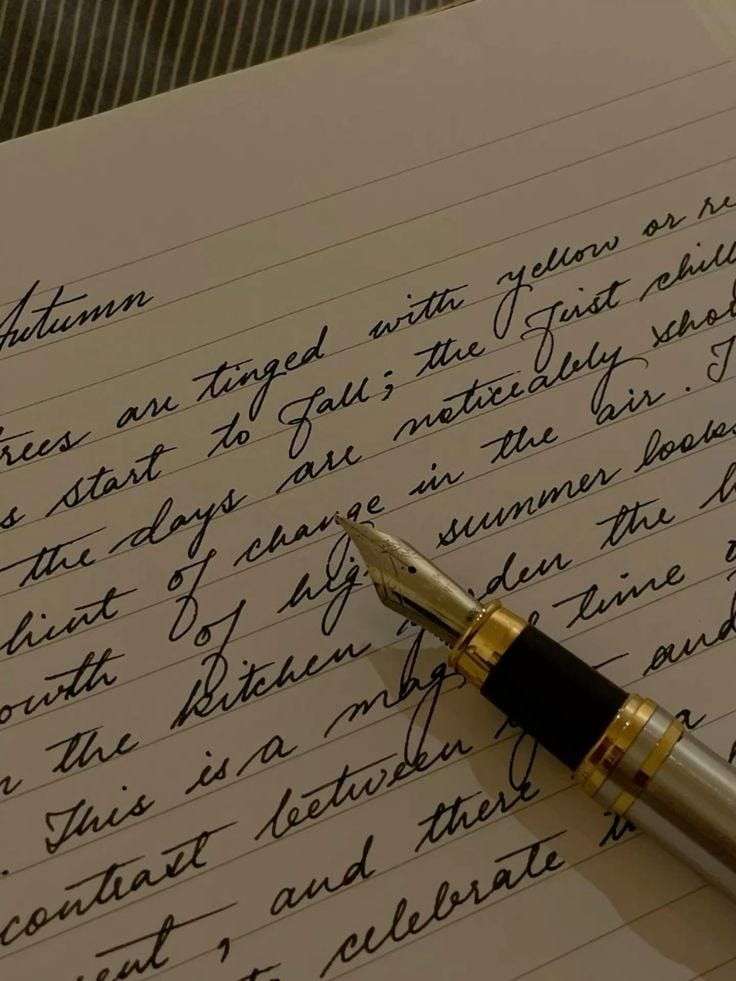 Autumn
trees are tinged with yellow or re
s start to fall; the first chill
the days are noticeably shor
hint of change in the air. T
owth of high summer looks
n the kitchen the
. This is a time
contrast between a and
ent, and there
to celebrate